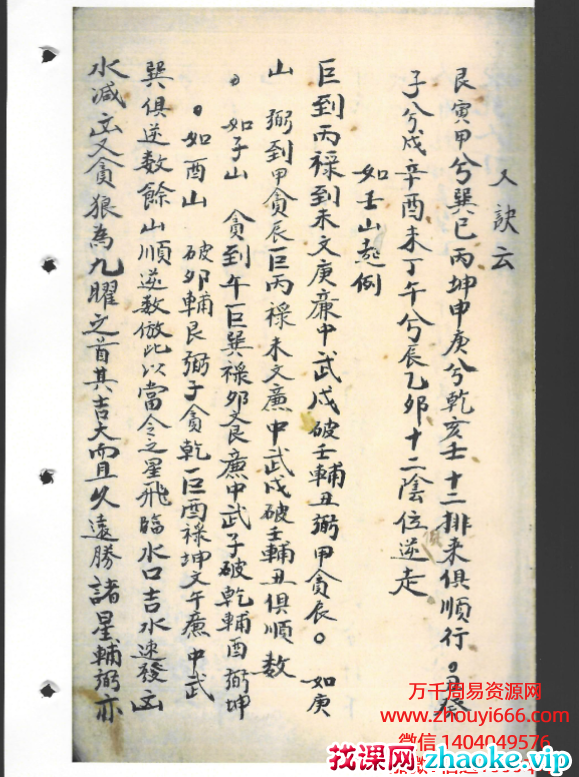 又訣云
艮寅甲兮巽巳丙坤申庚兮乾亥壬十二排来俱順行。癸
子兮戌辛酉未丁午兮辰乙卯十二陰位逆走
如壬山起例
巨到丙祿到未文庚廉中武戌破壬輔丑弼甲貪辰。如庚
山弼到甲貪辰巨丙祿未文廉中武戌破壬輔丑俱順数
。如子山貪到午巨巽祿卯文艮廉中武子破乾輔酉弼坤
。如酉山破卯輔艮弼子貪乾巨酉祿坤文午廉中武
巽俱逆数餘山順逆数倣此以當令之星飛臨水口吉水速發凶
水减凶又貪狼為九曜之首其吉大而且久遠勝諸星輔弼亦
万千周易资源网
www.zhouyi666.com
微信 1404049576
找课网zhaoke.vip